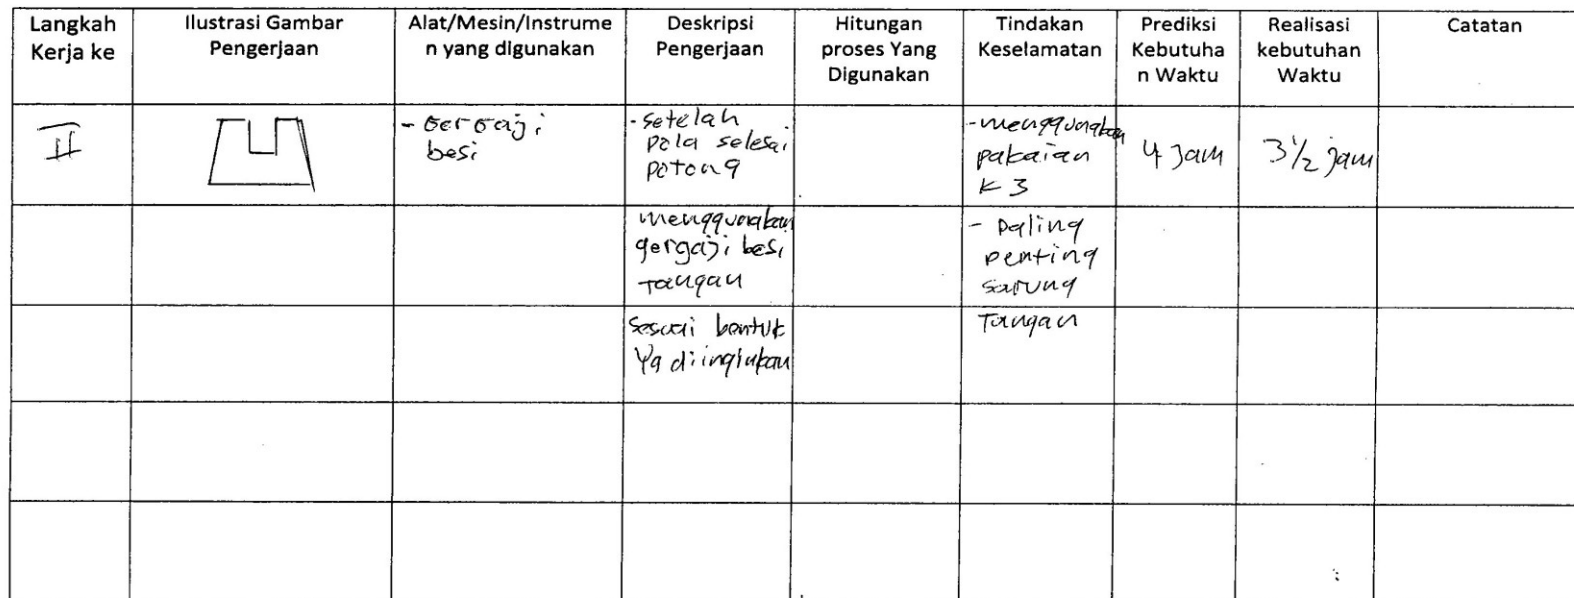 Langkah
Kerja ke
Ilustrasi Gambar
Pengerjaan
Alat/Mesin/Instrume
n yang digunakan
Deskripsi
Pengerjaan
Hitungan
proses Yang
Digunakan
Tindakan
Keselamatan
Prediksi
Kebutuha
n Waktu
Realisasi
kebutuhan
Waktu
Catatan
II
- Gergaji
besi
- setelah
pola selesai
potong
- menggunakan
pakaian
K3
4 Jam
3 1/2 jam
menggunakan
gergaji besi
Tangan
- paling
penting
sarung
sesuai bentuk
yg diinginkan
Tangan